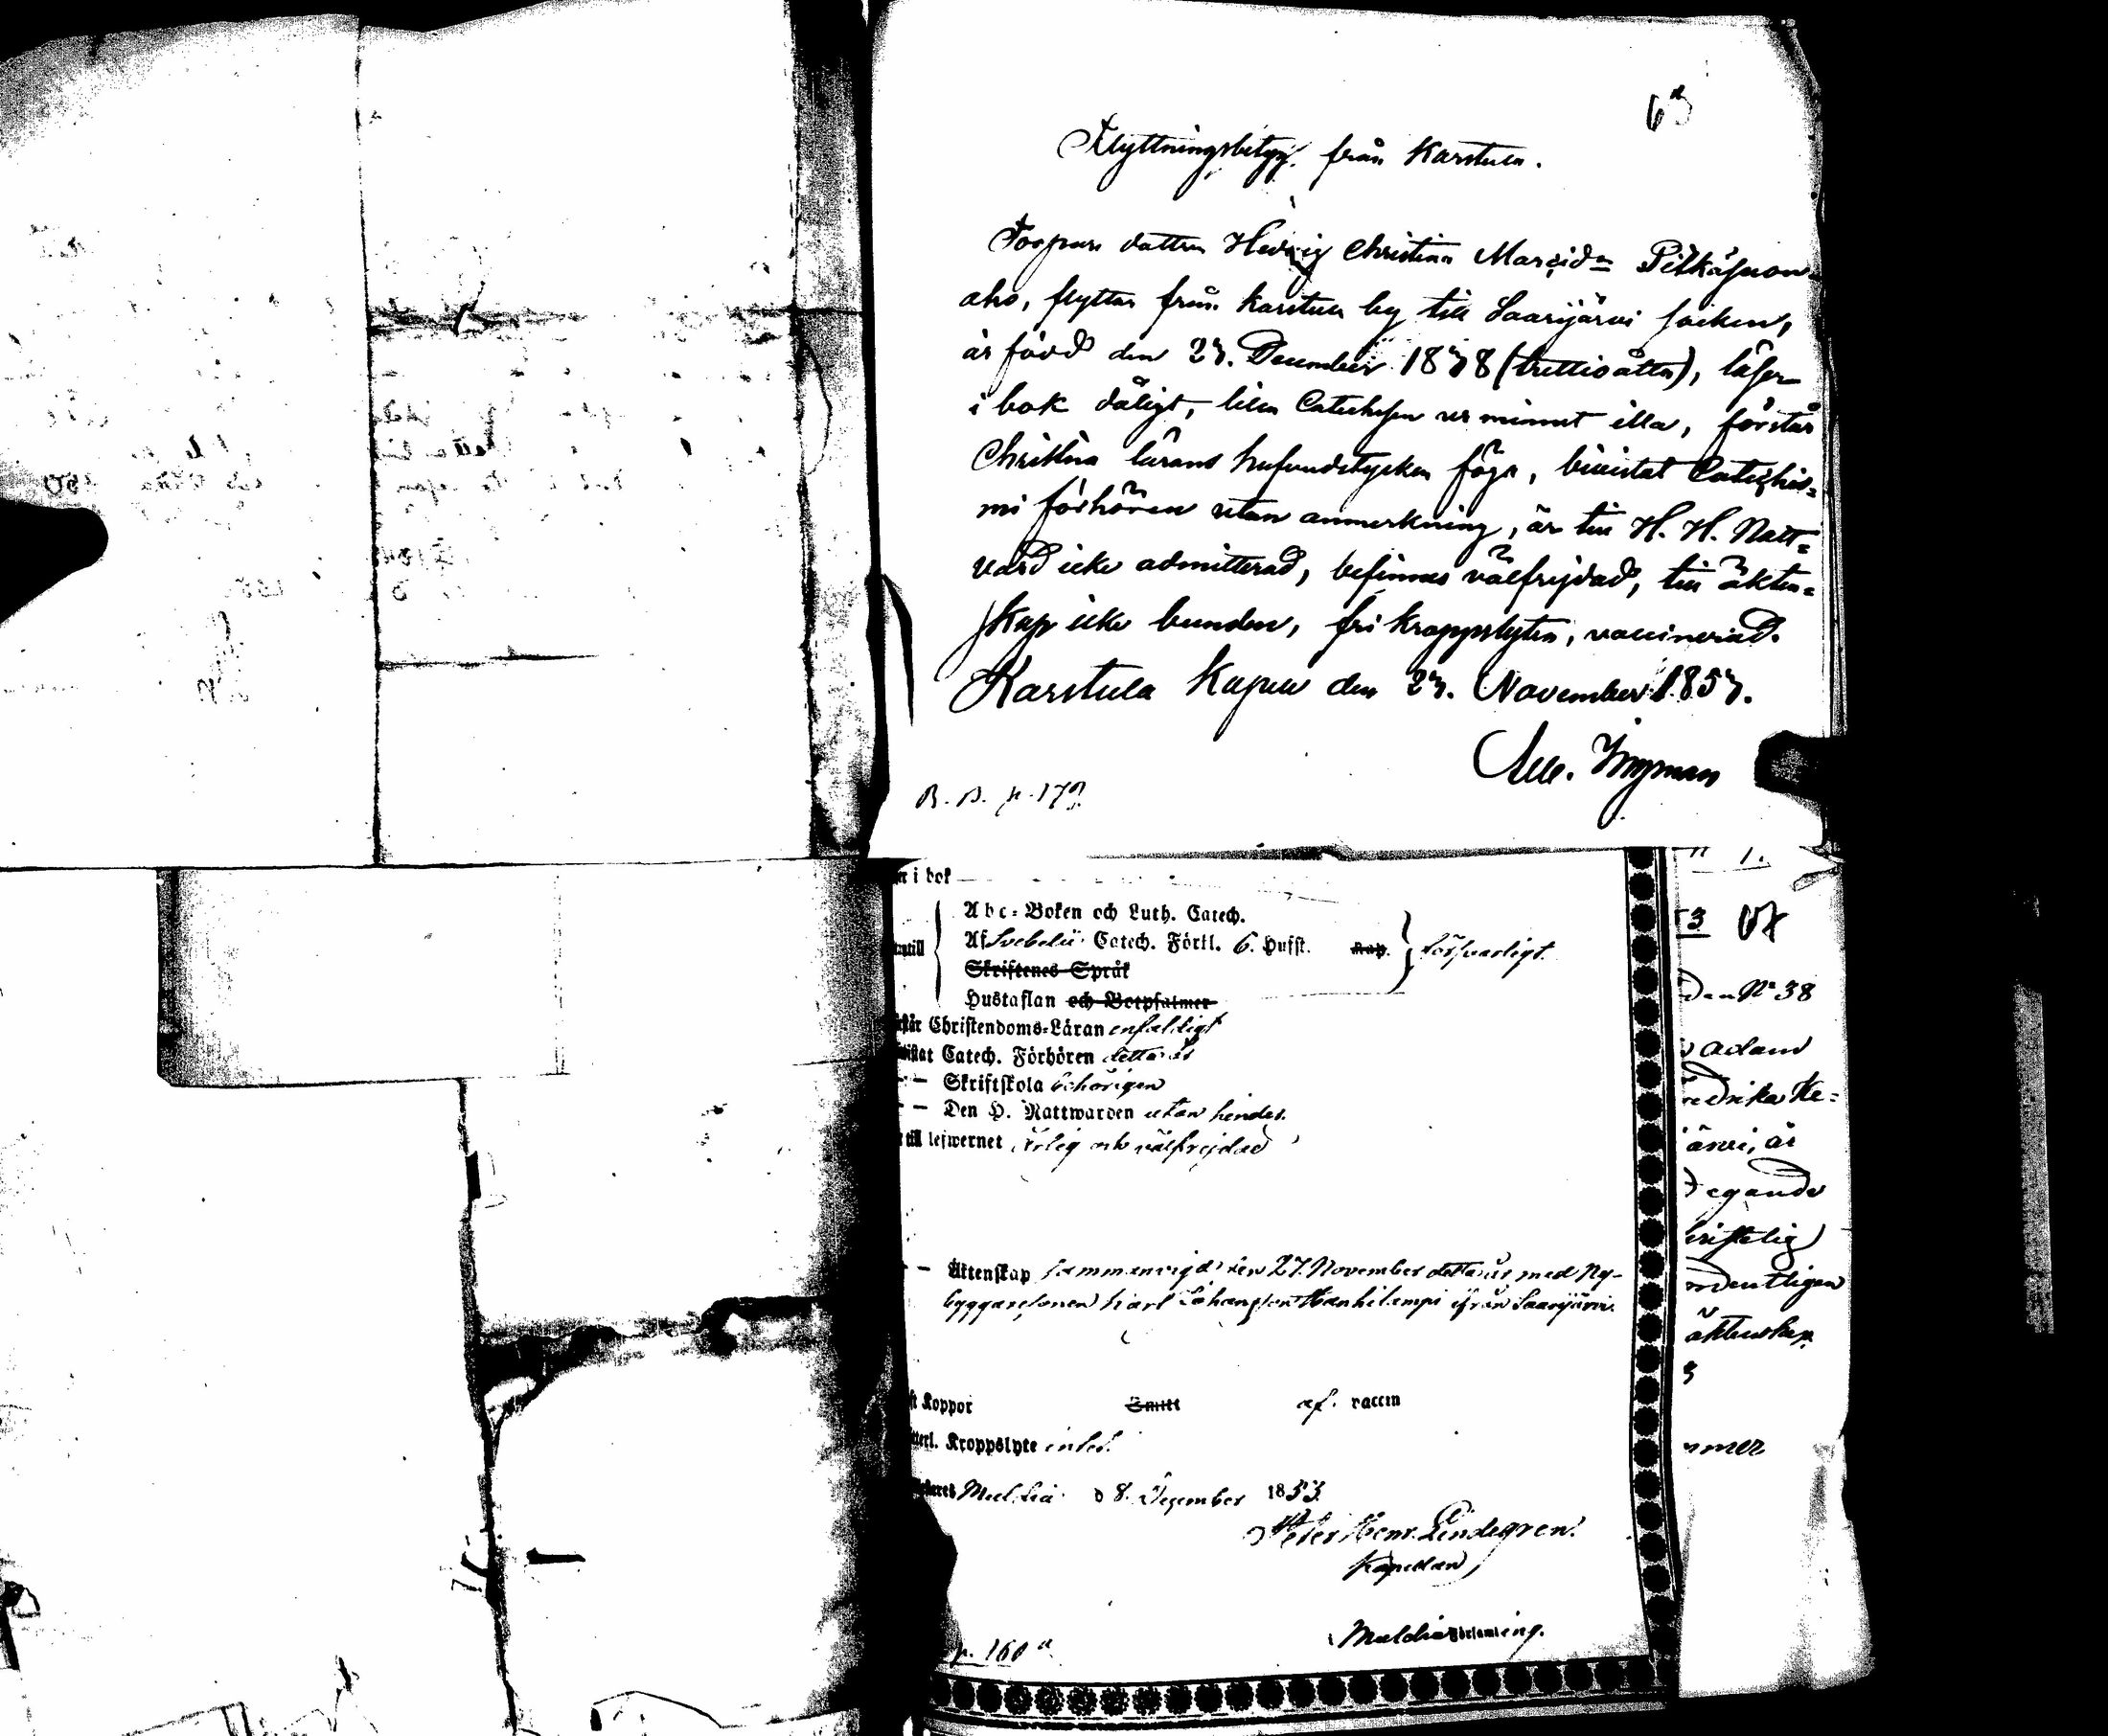 63
Flyttningsbetyg från Karstula.
Torpare dottren Hedvig Christina Marsid:r Pitkäsuon
aho, flyttar från Karstula by till Saarijärvi socken,
är född den 23. December 1838 (trettioåtta), läser
i bok dåligt, lilla Catechesen ur minnet illa, förstår
Christna lärans hufvudstycken föga, bivistat Catechis=
mi förhören utan anmerkning, är till H. H. Natt=
vard icke admitterad, befinnes välfrejdad, till äkten=
skap icke bunden, fri kroppslyten, vaccinerad.
Karstula Kapell den 23. November 1853.
Ingman
B. B. p. 179
i bok
Abc-Boken och Luth. Catech.
Af Svebelii Catech. Förkl. 6. Hufst. försvarligt
Skriftenes Språk
Hustaflan och Botpsalmer
Christendoms-Läran enfaldigt
Catech. Förhören detta år
— Skriftskola behörigen
— Den H. Nattwarden utan hinder.
till lefwernet ärlig och välfrejdad
— Äktenskap sammanvigd den 27. November detta år med Ny-
byggaresonen Karl Johansson Hanhilampi ifrån Saarijärvi.
Koppor Smitt af vaccin
Kroppslyte intet.
Muldia d 8. December 1853.
Peter Henr. Lindegren.
Kapellan
Muldia Församling.
p. 160
53 64
Den No 38
Adam
Ke=
är
egande
ordentligen
äktenskap